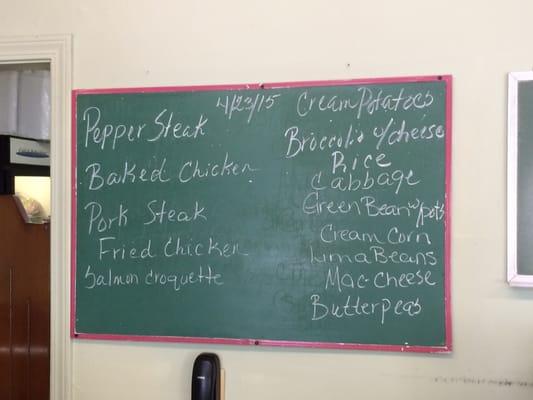 4/23/15
Pepper Steak
Baked Chicken
Pork Steak
Fried Chicken
Salmon Croquette
Cream Potatoes
Broccoli w/cheese
Rice
Cabbage
Green Bean w/pots
Cream Corn
Lima Beans
Mac-Cheese
Butterpeas